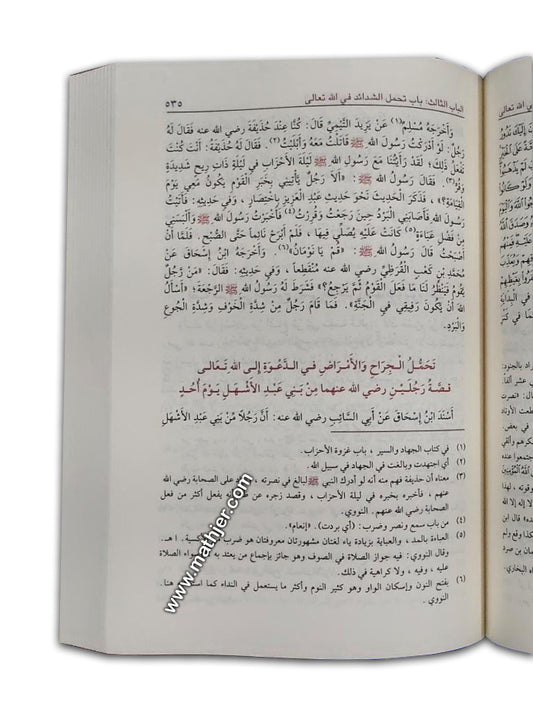 الباب الثالث: باب تحمل الشدائد في الله تعالى
٥٣٥
وَأَخْرَجَهُ مُسْلِمٌ(١) عَنْ يَزِيدَ التَّيْمِيِّ قَالَ: كُنَّا عِنْدَ حُذَيْفَةَ رضي الله عنه فَقَالَ لَهُ
رَجُلٌ: لَوْ أَدْرَكْتُ رَسُولَ اللهِ ﷺ قَاتَلْتُ مَعَهُ وَأَبْلَيْتُ(٢). فَقَالَ لَهُ حُذَيْفَةُ: أَنْتَ كُنْتَ
تَفْعَلُ ذٰلِكَ؛ لَقَدْ رَأَيْتُنَا مَعَ رَسُولِ اللهِ ﷺ لَيْلَةَ الْأَحْزَابِ فِي لَيْلَةٍ ذَاتِ رِيحٍ شَدِيدَةٍ
وَقُرٍّ(٣). فَقَالَ رَسُولُ اللهِ ﷺ: «أَلَا رَجُلٌ يَأْتِينِي بِخَبَرِ الْقَوْمِ يَكُونُ مَعِي يَوْمَ
الْقِيَامَةِ؟»، فَذَكَرَ الْحَدِيثَ نَحْوَ حَدِيثِ عَبْدِ الْعَزِيزِ بِاخْتِصَارٍ، وَفِي حَدِيثِهِ: فَأَتَيْتُ
رَسُولَ اللهِ فَأَصَابَنِي الْبَرْدُ حِينَ رَجَعْتُ وَقُرِرْتُ(٤) فَأَخْبَرْتُ رَسُولَ اللهِ ﷺ وَأَلْبَسَنِي
مِنْ فَضْلِ عَبَاءَةٍ(٥) كَانَتْ عَلَيْهِ يُصَلِّي فِيهَا، فَلَمْ أَبْرَحْ نَائِماً حَتَّى الصُّبْحِ. فَلَمَّا أَنْ
أَصْبَحْتُ قَالَ رَسُولُ اللهِ ﷺ: «قُمْ يَا نَوْمَانُ»(٦). وَأَخْرَجَهُ ابْنُ إِسْحَاقَ عَنْ
مُحَمَّدِ بْنِ كَعْبٍ الْقُرَظِيِّ رضي الله عنه مُنْقَطِعاً، وَفِي حَدِيثِهِ: فَقَالَ: «مَنْ رَجُلٌ
يَقُومُ فَيَنْظُرُ لَنَا مَا فَعَلَ الْقَوْمُ ثُمَّ يَرْجِعُ؟» فَشَرَطَ لَهُ رَسُولُ اللهِ ﷺ الرَّجْعَةَ، «أَسْأَلُ
اللهَ أَنْ يَكُونَ رَفِيقِي فِي الْجَنَّةِ». فَمَا قَامَ رَجُلٌ مِنْ شِدَّةِ الْخَوْفِ وَشِدَّةِ الْجُوعِ
وَالْبَرْدِ.
تَحَمُّلُ الْجِرَاحِ وَالْأَمْرَاضِ فِي الدَّعْوَةِ إِلَى اللهِ تَعَالَى
قِصَّةُ رَجُلَيْنِ رضي الله عنهما مِنْ بَنِي عَبْدِ الْأَشْهَلِ يَوْمَ أُحُدٍ
أَسْنَدَ ابْنُ إِسْحَاقَ عَنْ أَبِي السَّائِبِ رضي الله عنه: أَنَّ رَجُلًا مِنْ بَنِي عَبْدِ الْأَشْهَلِ
(١) في كتاب الجهاد والسير ، باب غزوة الأحزاب.
(٢) أي اجتهدت وبالغت في الجهاد في سبيل الله.
(٣) معناه أن حذيفة فهم منه أنه لو أدرك النبي ﷺ لبالغ في نصرته ، على الصحابة رضي الله
عنهم ، فأخبره بخبره في ليلة الأحزاب ، وقصد زجره عن يفعل أكثر من فعل
الصحابة رضي الله عنهم. النووي.
(٤) من باب سمع ونصر وضرب: (أي بردت). «إنعام».
(٥) العباءة بالمد ، والعباية بزيادة ياء لغتان مشهورتان معروفتان هو ضرب اهـ.
وقال النووي: فيه جواز الصلاة في الصوف وهو جائز بإجماع من يعتد به الصلاة
عليه ، وفيه ، ولا كراهية في ذلك.
(٦) بفتح النون وإسكان الواو وهو كثير النوم وأكثر ما يستعمل في النداء كما هنا.
النووي .
www.mathjer.com